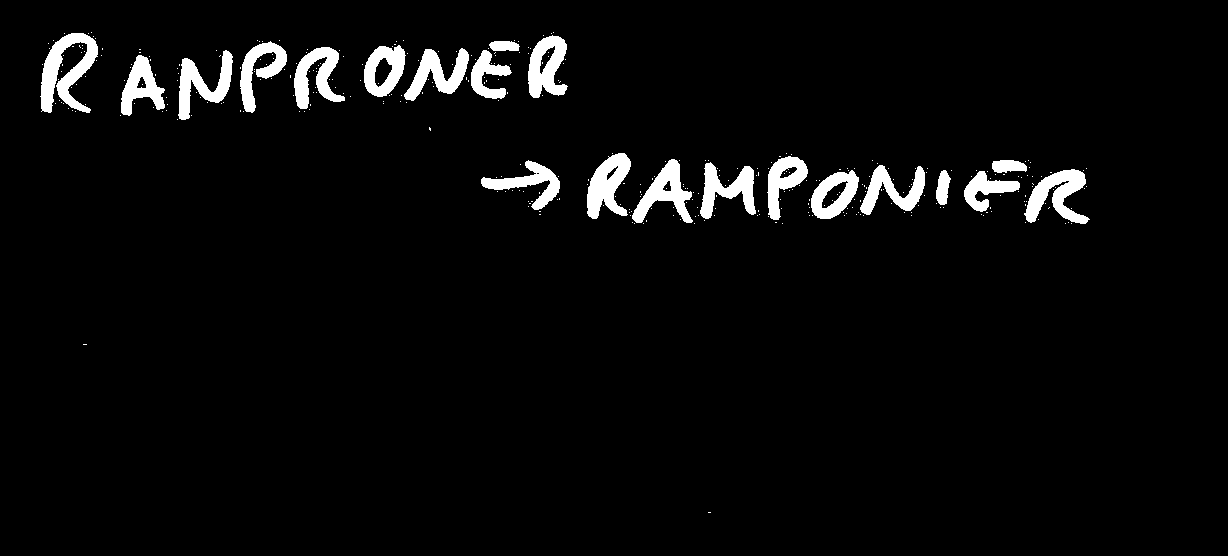 RANPRONER
→ RAMPONIER